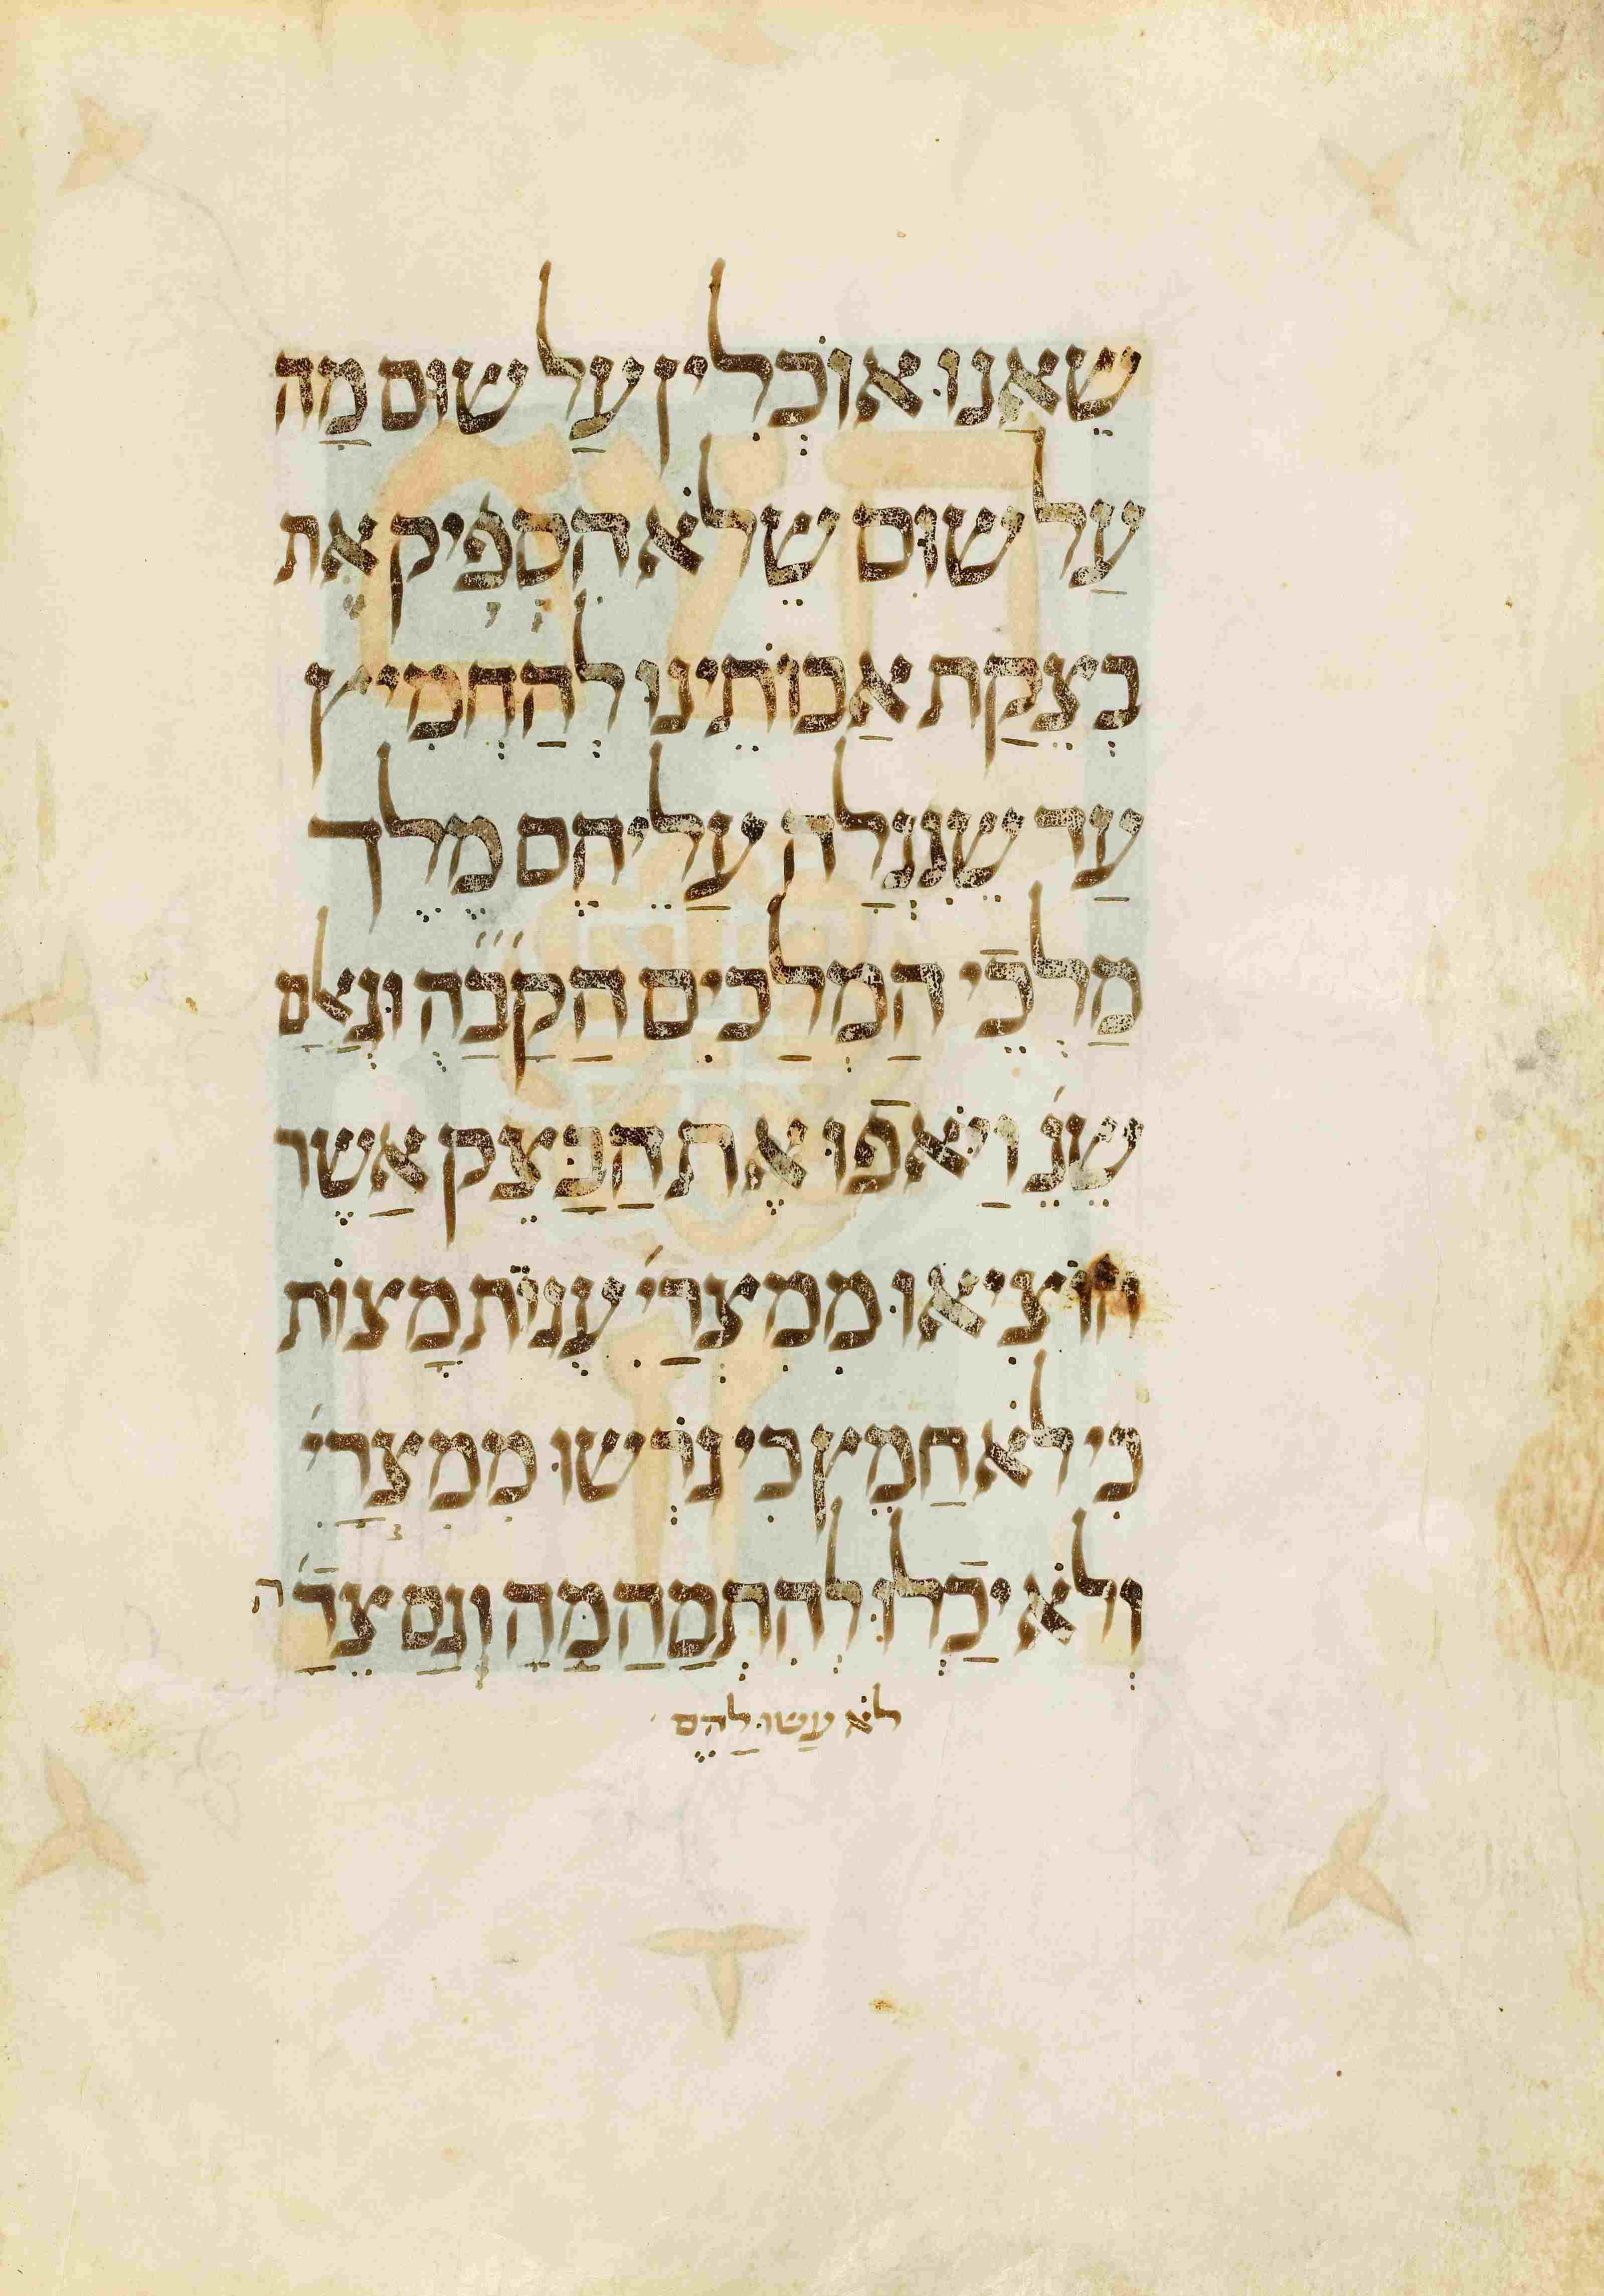 שאנו אוכלין על שום מה
על שום שלא הספיק את
בצקת אבותינו להחמיץ
עד שנגלה עליהם מלך
מלכי המלכים הקבה וגאלם
שנ׳ ויאפו את הבצק אשר
הוציאו ממצרי׳ עגות מצות
כי לא חמץ כי גרשו ממצרי׳
ולא יכלו להתמהמה וגם צד׳ה
לא עשו להם